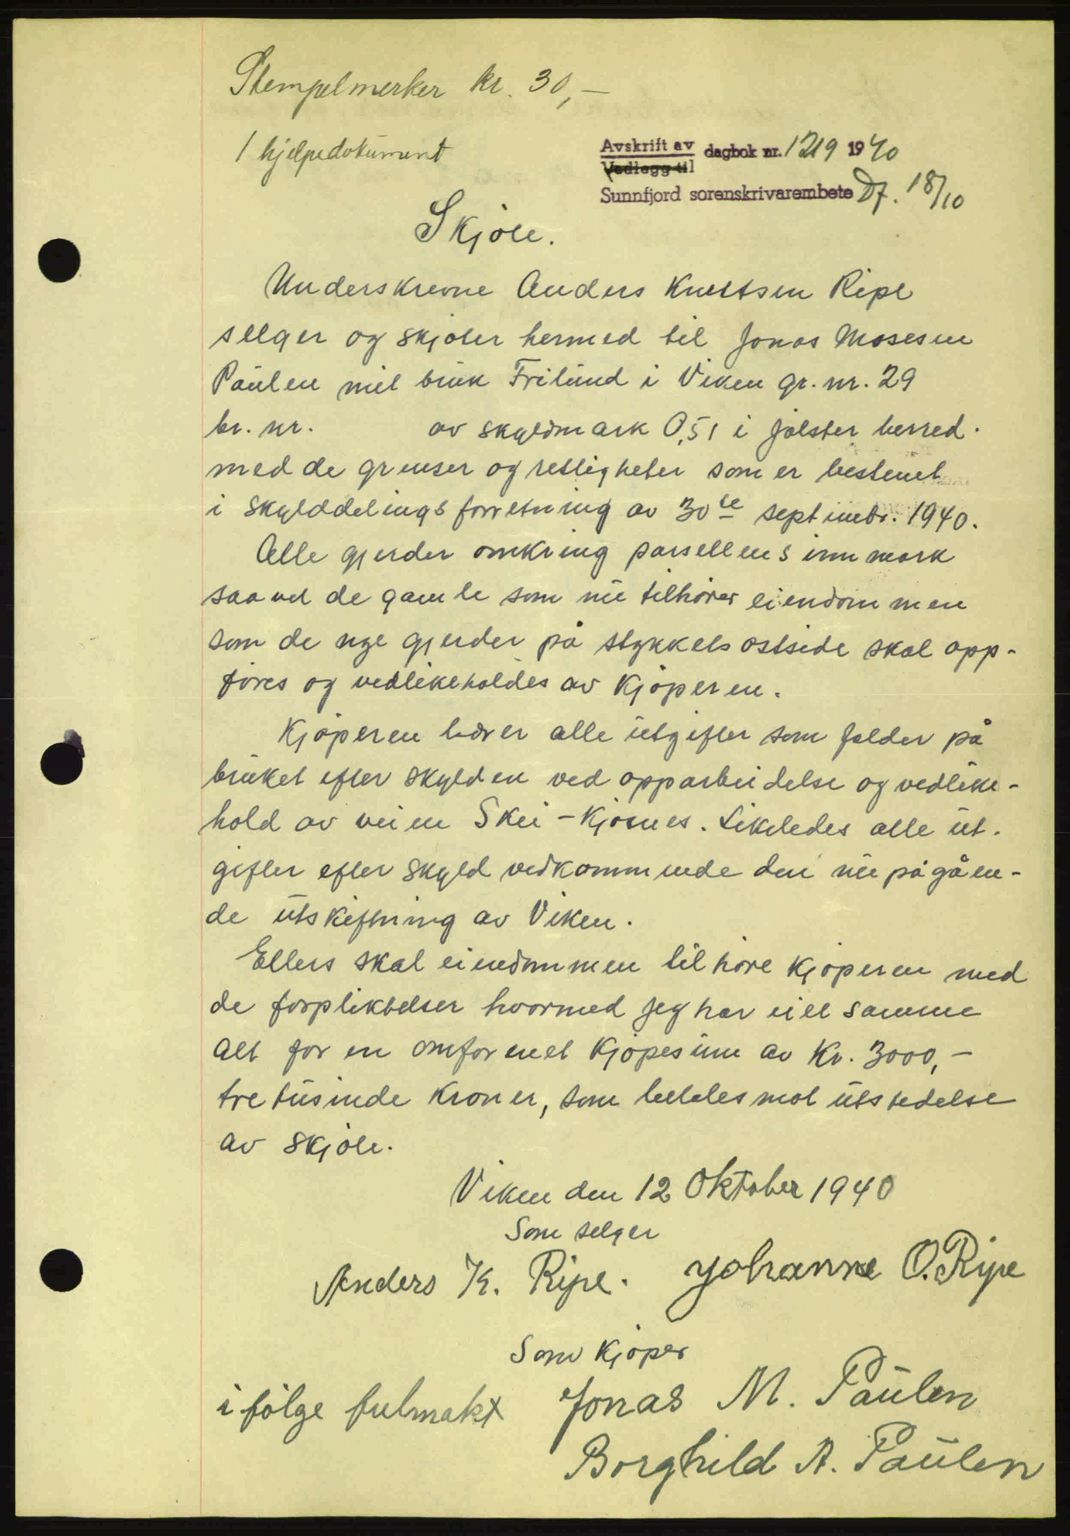 Stempelmerker kr. 30,-
1 hjelpedokument
Avskrift av dagbok nr. 1219 1940
Vedlegg til
Sunnfjord sorenskrivarembete Df. 18/10
Skjöte.
Underskrevne Anders Knutsen Ripe
selger og skjöter hermed til Jonas Mosesen
Paulen mit bruk Frilund i Viken gr. nr. 29
br. nr. av skyldmark 0,51 i Jölster herred.
med de grenser og rettigheter som er bestemt
i skylddelingsforretning av 30te septembr. 1940.
Alle gjerder omkring parsellens innmark
saavel de gamle som nu tilhörer eiendommen
som de nye gjerder på stykkets östside skal opp-
föres og vedlikeholdes av kjöperen.
Kjöperen bærer alle utgifter som falder på
bruket efter skylden ved opparbeidelse og vedlike-
hold av veien Skei - Kjösnes. Likeledes alle ut-
gifter efter skyld vedkommende den nu pågåen-
de utskiftning av Viken.
Ellers skal eiendommen tilhöre kjöperen med
de forpliktelser hvormed jeg har eiet samme
alt for en omforenet kjöpesum av Kr. 3000,-
tretusinde kroner, som betales mot utstedelse
av skjöte.
Viken den 12 Oktober 1940
Som selger
Anders K. Ripe. Johanne O. Ripe
Som kjöper
i fölge fulmakt Jonas M. Paulen
Borghild A. Paulen